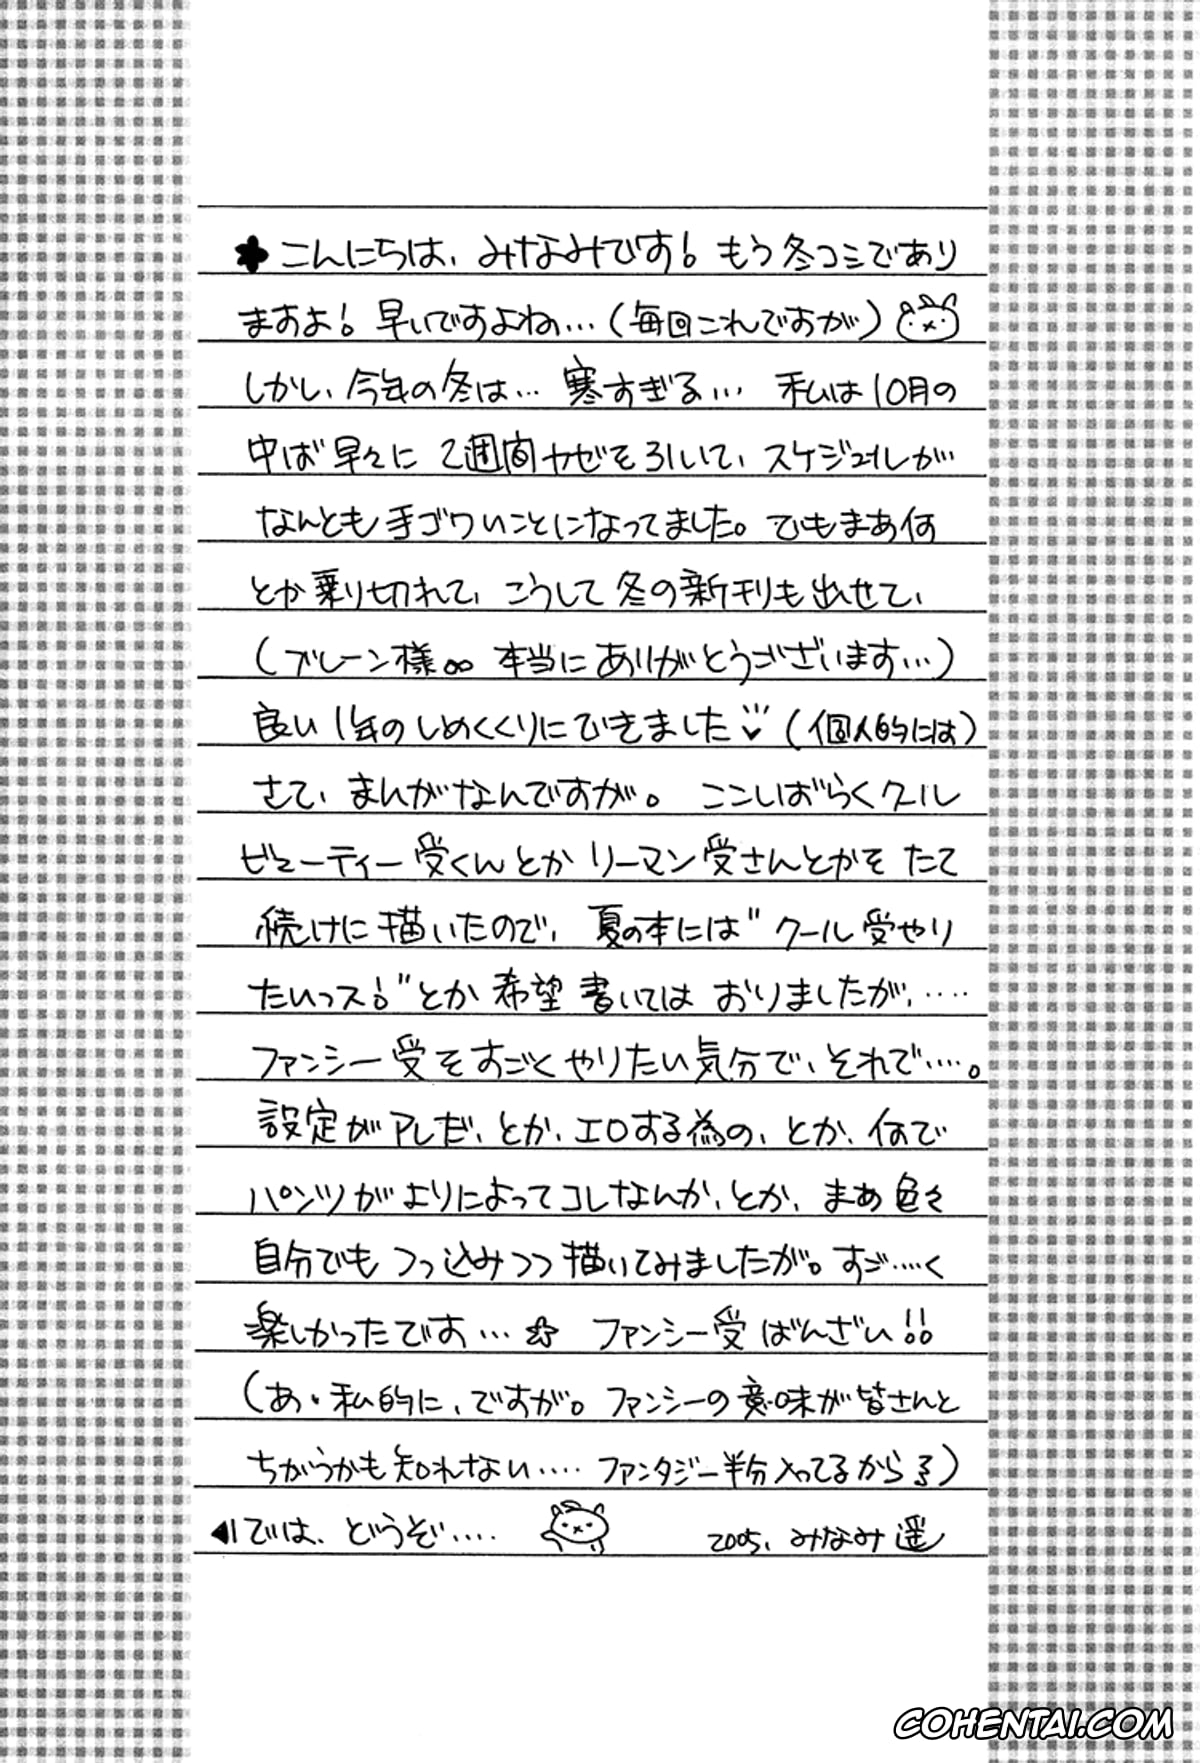 こんにちは、みなみです! もう冬コミであり
ますよ! 早いですよね…(毎回これですが)
しかし、今年の冬は… 寒すぎる… 私は10月の
中ば早々に 2週間カゼを引いて、スケジュールが
なんとも手ゴワいことになってました。でもまあ何
とか乗り切れて、こうして冬の新刊も出せて、
(ブレーン様∞ 本当にありがとうございます…)
良い1年のしめくくりにできました (個人的には)
さて、まんがなんですが。 ここしばらくクール
ビューティー受くんとか リーマン受さんとかを たて
続けに描いたので、夏の本には"クール受やり
たいっス!"とか希望書いては おりましたが、‥‥
ファンシー受をすごくやりたい気分で、それで‥‥。
設定がアレだ、とか、エロする為の、とか、何で
パンツがよりによってコレなんか、とか、まあ色々
自分でもつっ込みつつ描いてみましたが。すご‥‥く
楽しかったです…☆ ファンシー受 ばんざい!!
(あ・私的に、ですが。ファンシーの意味が皆さんと
ちがうかも知れない‥‥ ファンタジー半分入ってるからろ)
◀では、どうぞ‥‥ 2005. みなみ遥
COHENTAI.COM